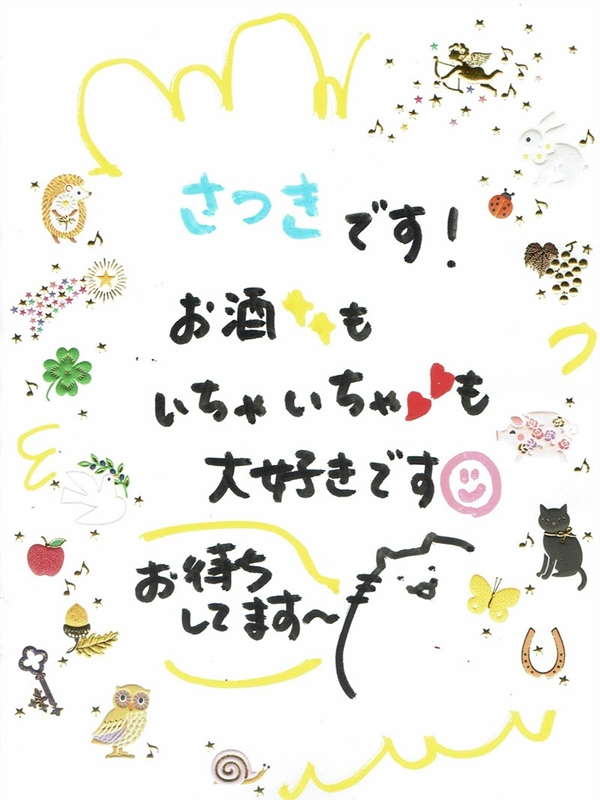 さつきです!
お酒も
いちゃいちゃも
大好きです
お待ち
してます〜